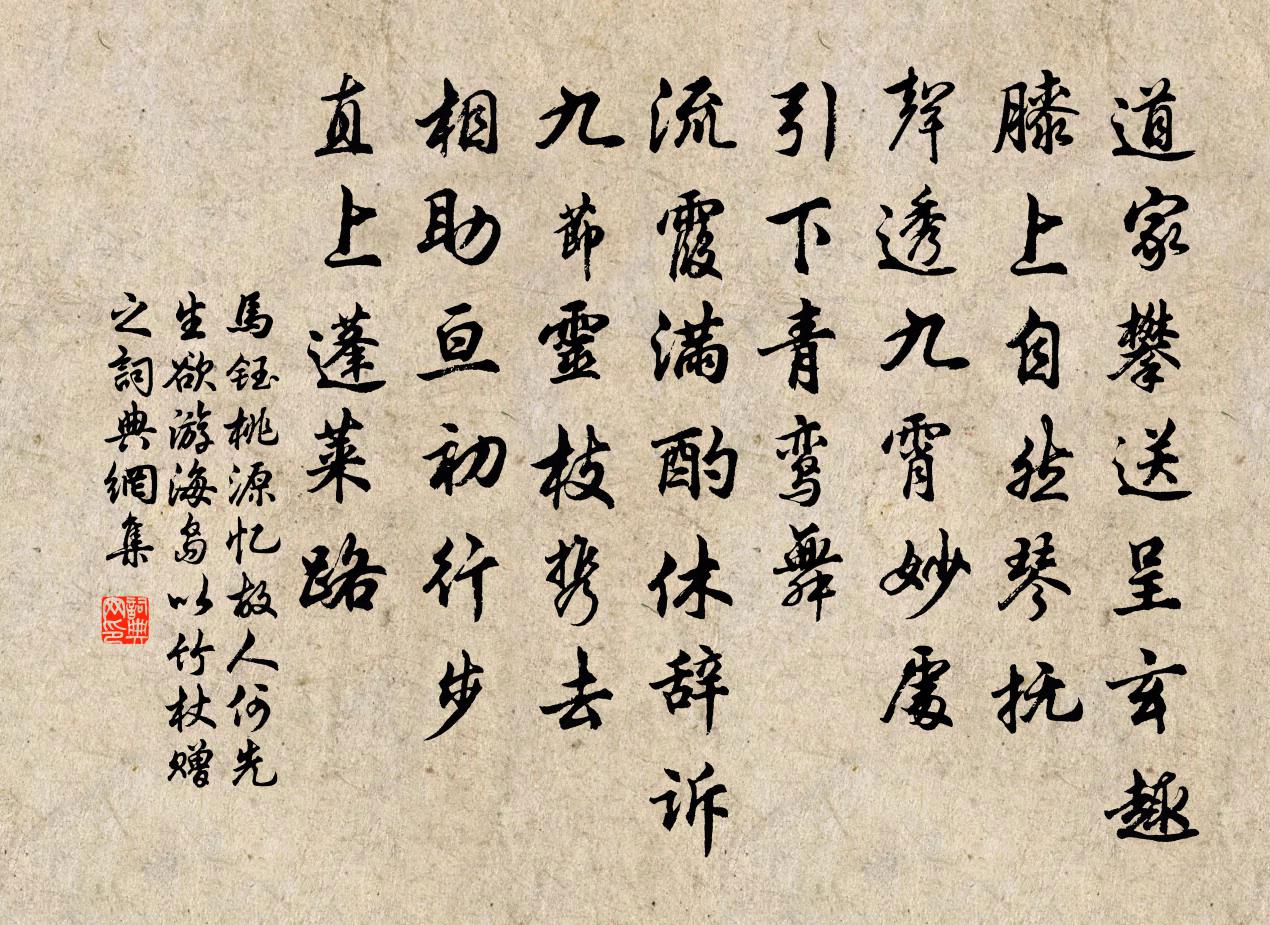 道家攀送呈玄趣
膝上自然琴抚
聲透九霄妙處
引下青鸾舞
流霞满酌休辞诉
九節靈枝携去
相助亘初行步
直上蓬莱路
馬鈺桃源忆故人何先
生欲游海岛以竹杖赠
之詞典網集
詞典
网印